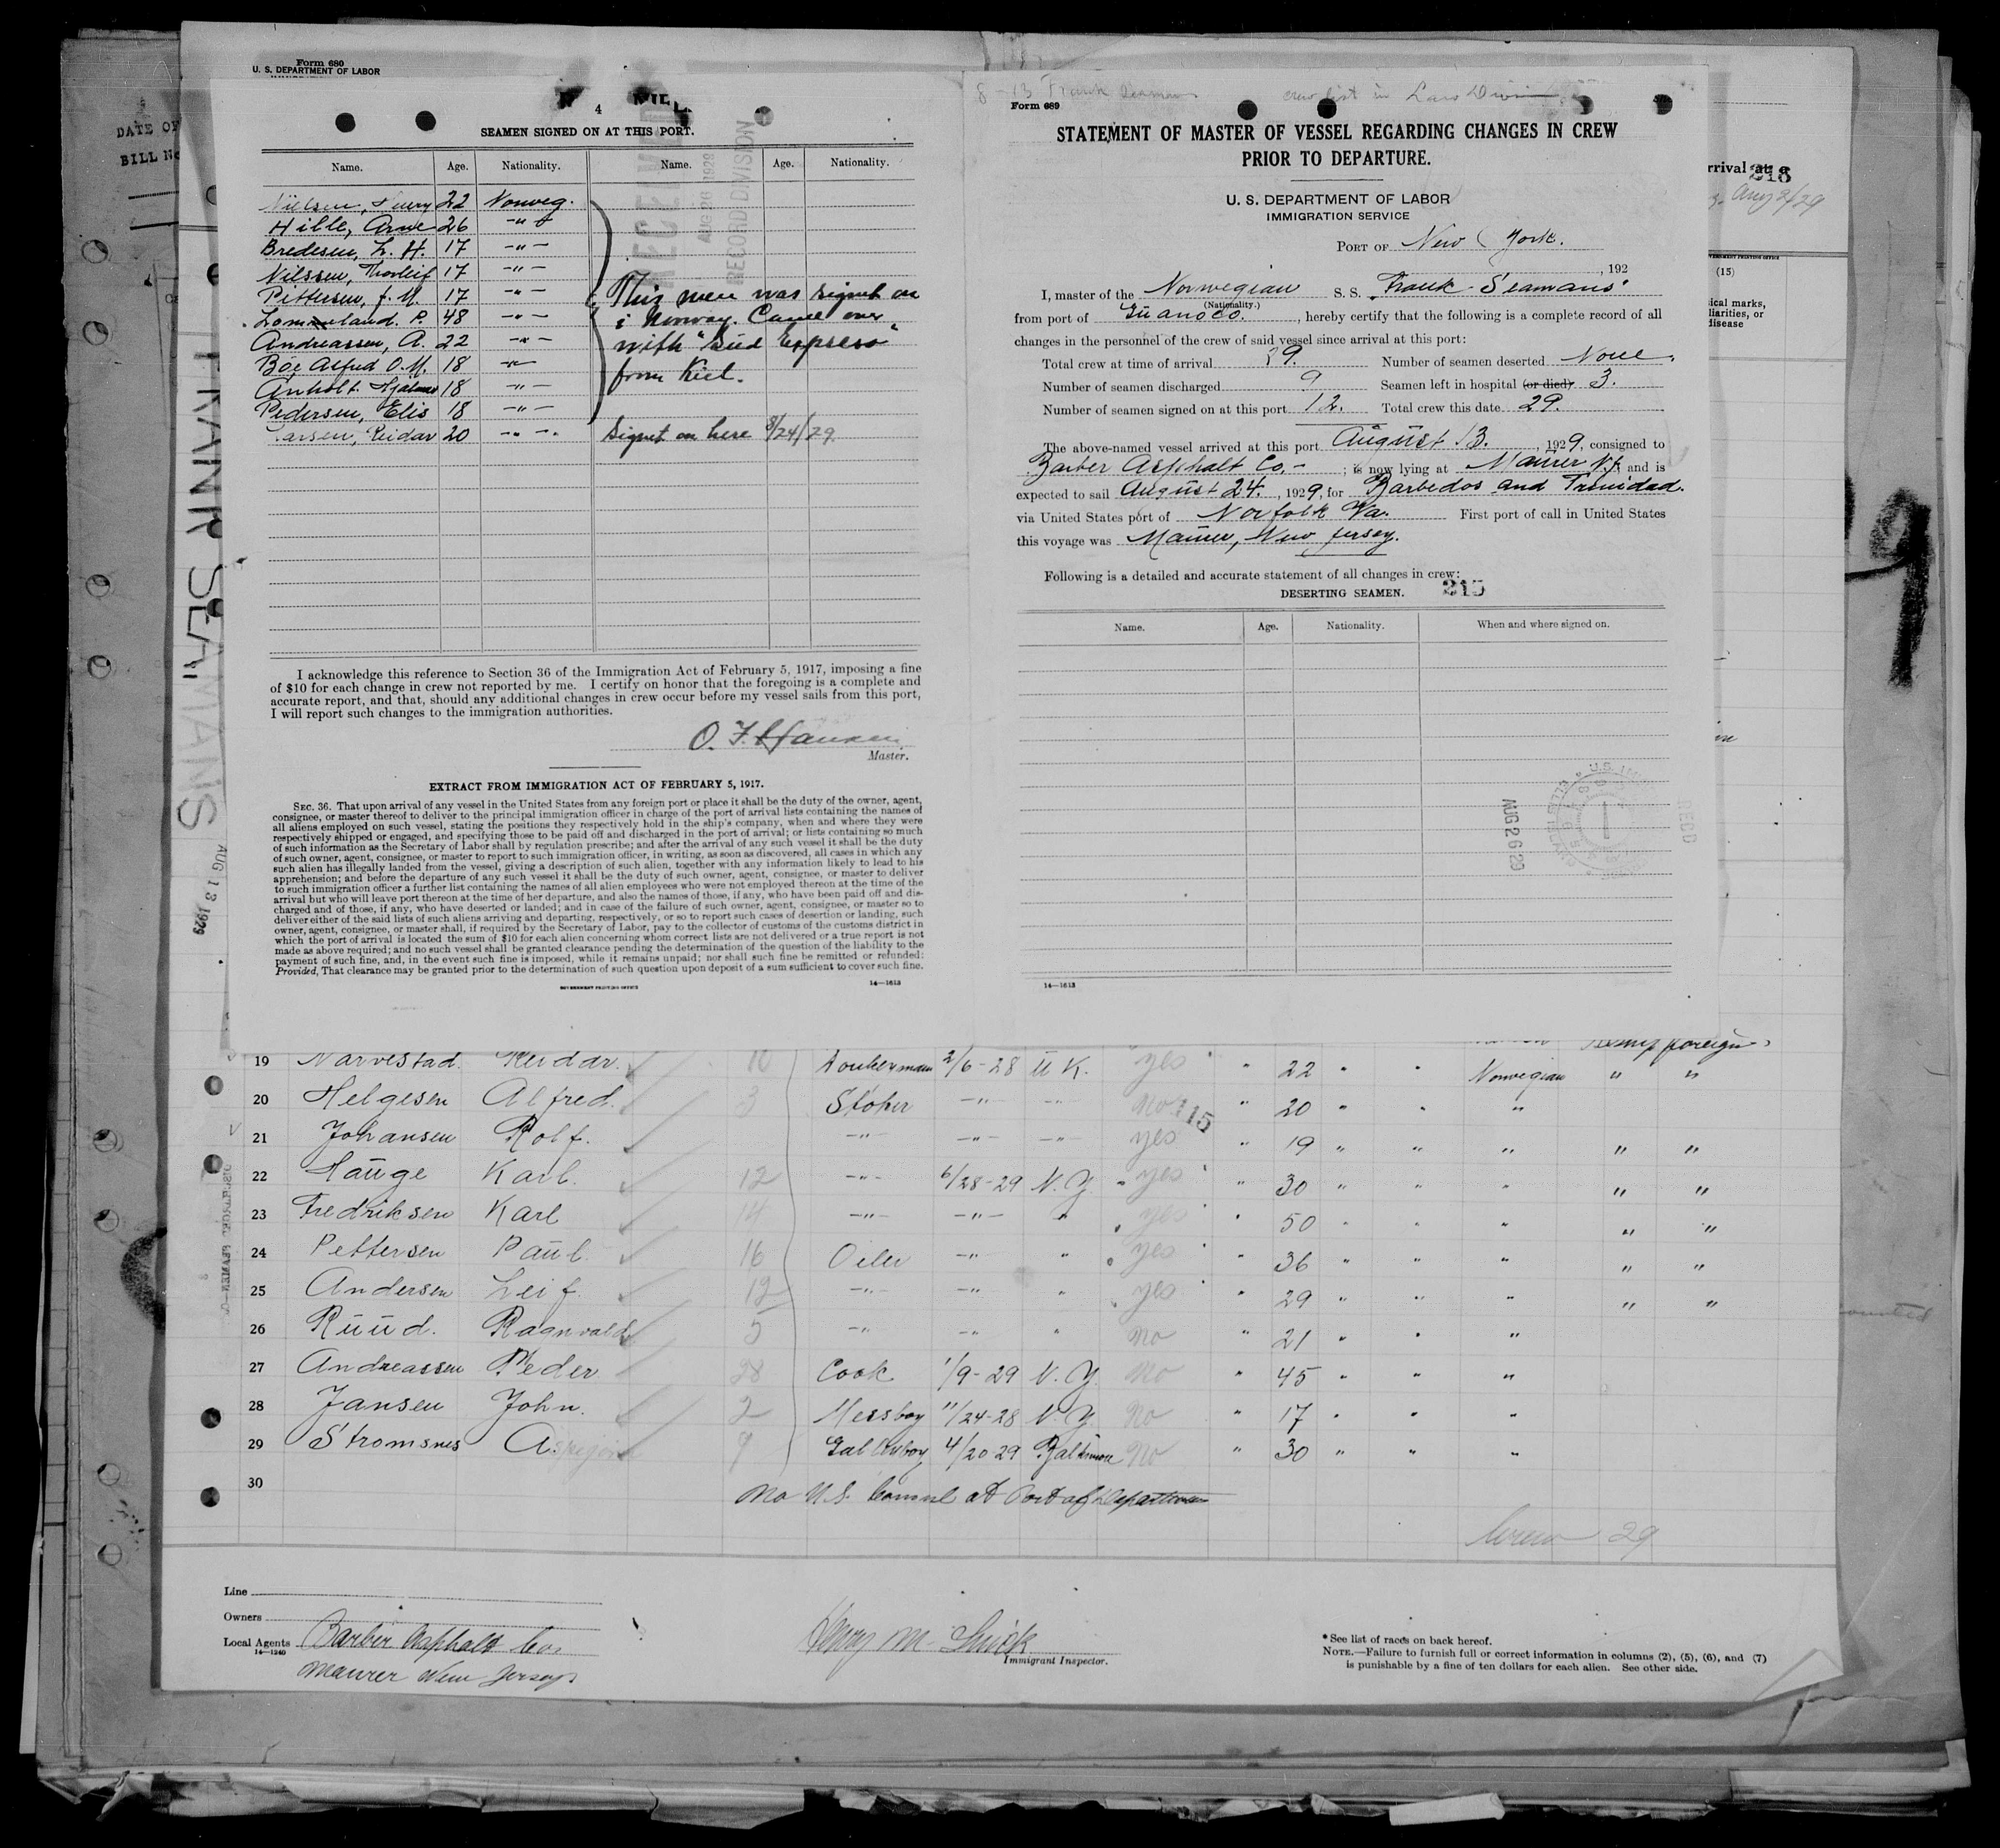 Form 689
U. S. DEPARTMENT OF LABOR
4
SEAMEN SIGNED ON AT THIS PORT.
Name. Age. Nationality. Name. Age. Nationality.
Nielsen, 22 Norweg.
Hille, Arne 26 -"-
Bredesen, L. H. 17 -"-
Nilssen, Thorleif 17 -"-
Pettersen, J. M. 17 -"-
Lommeland. P. 48 -"-
Andreassen, A. 22 -"-
Böe Alfred O. M. 18 -"-
Anholt Hjalmar 18 -"-
Pedersen, Elis 18 -"-
Larsen, Reidar 20 -"-
This men was signet on
i Norway. Came over
with "Süd Expreso"
from Kiel.
Signet on here 8/24/29.
RECEIVED
AUG 26 1929
RECORD DIVISION
I acknowledge this reference to Section 36 of the Immigration Act of February 5, 1917, imposing a fine
of $10 for each change in crew not reported by me. I certify on honor that the foregoing is a complete and
accurate report, and that, should any additional changes in crew occur before my vessel sails from this port,
I will report such changes to the immigration authorities.
O. F. Hansen
Master.
EXTRACT FROM IMMIGRATION ACT OF FEBRUARY 5, 1917.
SEC. 36. That upon arrival of any vessel in the United States from any foreign port or place it shall be the duty of the owner, agent,
consignee, or master thereof to deliver to the principal immigration officer in charge of the port of arrival lists containing the names of
all aliens employed on such vessel, stating the positions they respectively hold in the ship's company, when and where they were
respectively shipped or engaged, and specifying those to be paid off and discharged in the port of arrival; or lists containing so much
of such information as the Secretary of Labor shall by regulation prescribe; and after the arrival of any such vessel it shall be the duty
of such owner, agent, consignee, or master to report to such immigration officer, in writing, as soon as discovered, all cases in which any
such alien has illegally landed from the vessel, giving a description of such alien, together with any information likely to lead to his
apprehension; and before the departure of any such vessel it shall be the duty of such owner, agent, consignee, or master to deliver
to such immigration officer a further list containing the names of all alien employees who were not employed thereon at the time of the
arrival but who will leave port thereon at the time of her departure, and also the names of those, if any, who have been paid off and dis-
charged and of those, if any, who have deserted or landed; and in case of the failure of such owner, agent, consignee, or master so to
deliver either of the said lists of such aliens arriving and departing, respectively, or so to report such cases of desertion or landing, such
owner, agent, consignee, or master shall, if required by the Secretary of Labor, pay to the collector of customs of the customs district in
which the port of arrival is located the sum of $10 for each alien concerning whom correct lists are not delivered or a true report is not
made as above required; and no such vessel shall be granted clearance pending the determination of the question of the liability to the
payment of such fine, and, in the event such fine is imposed, while it remains unpaid; nor shall such fine be remitted or refunded:
Provided, That clearance may be granted prior to the determination of such question upon deposit of a sum sufficient to cover such fine.
GOVERNMENT PRINTING OFFICE 14—1613
8-13 Frank Seamans crew list in Law Division
Form 689
STATEMENT OF MASTER OF VESSEL REGARDING CHANGES IN CREW
PRIOR TO DEPARTURE.
U. S. DEPARTMENT OF LABOR
IMMIGRATION SERVICE
PORT OF New York.
, 192
I, master of the Norwegian S. S. "Frank Seamans"
(Nationality.)
from port of Guanoco. , hereby certify that the following is a complete record of all
changes in the personnel of the crew of said vessel since arrival at this port:
Total crew at time of arrival 29. Number of seamen deserted None.
Number of seamen discharged 9 Seamen left in hospital (or died) 3.
Number of seamen signed on at this port 12. Total crew this date 29.
The above-named vessel arrived at this port August 13. , 1929, consigned to
Barber Asphalt Co.- ; is now lying at Maurer N.J. and is
expected to sail August 24. , 1929, for Barbedos and Trinidad.
via United States port of Norfolk Va. First port of call in United States
this voyage was Maurer, New Jersey.
Following is a detailed and accurate statement of all changes in crew:
DESERTING SEAMEN. 215
Name. Age. Nationality. When and where signed on.
AUG 26 29
RECD
14—1613
DATE OF
BILL No
FRANK SEAMANS
AUG 13 1929
rrival at 218
Aug 3/29
(15)
sical marks,
liarities, or
disease
19 Narvestad. Reidar. 10 Donkermann 2/6-28 U K. yes " 22 " " Norwegian " "
20 Helgesen Alfred. 3 Stoker -"- -"- no 115 " 20 " " "
21 Johansen Rolf. -"- -"- -"- yes " 19 " " " " "
22 Hauge Karl. 12 -"- 6/28-29 N. Y. yes " 30 " " " " "
23 Fredriksen Karl 14 -"- -"- " yes " 50 " " " " "
24 Pettersen Paul. 16 Oiler -"- " yes " 36 " " " " "
25 Andersen Leif. 12 -"- -"- " yes " 29 " " " " "
26 Ruud. Ragnvald 5 -"- -"- " no " 21 " " "
27 Andreassen Peder 28 Cook 1/9-29 N. Y. no " 45 " " "
28 Jansen John. 2 Messboy 11/24-28 N. Y. no " 17 " " "
29 Stromsnes A. 9 4/20-29 Baltimore no " 30 " " "
30
No U.S. Consul at Port of Departure
Crew 29
Line
Owners
Local Agents Barber Asphalt Co.
14—1240
Maurer New Jersey
Immigrant Inspector.
* See list of races on back hereof.
NOTE.—Failure to furnish full or correct information in columns (2), (5), (6), and (7)
is punishable by a fine of ten dollars for each alien. See other side.